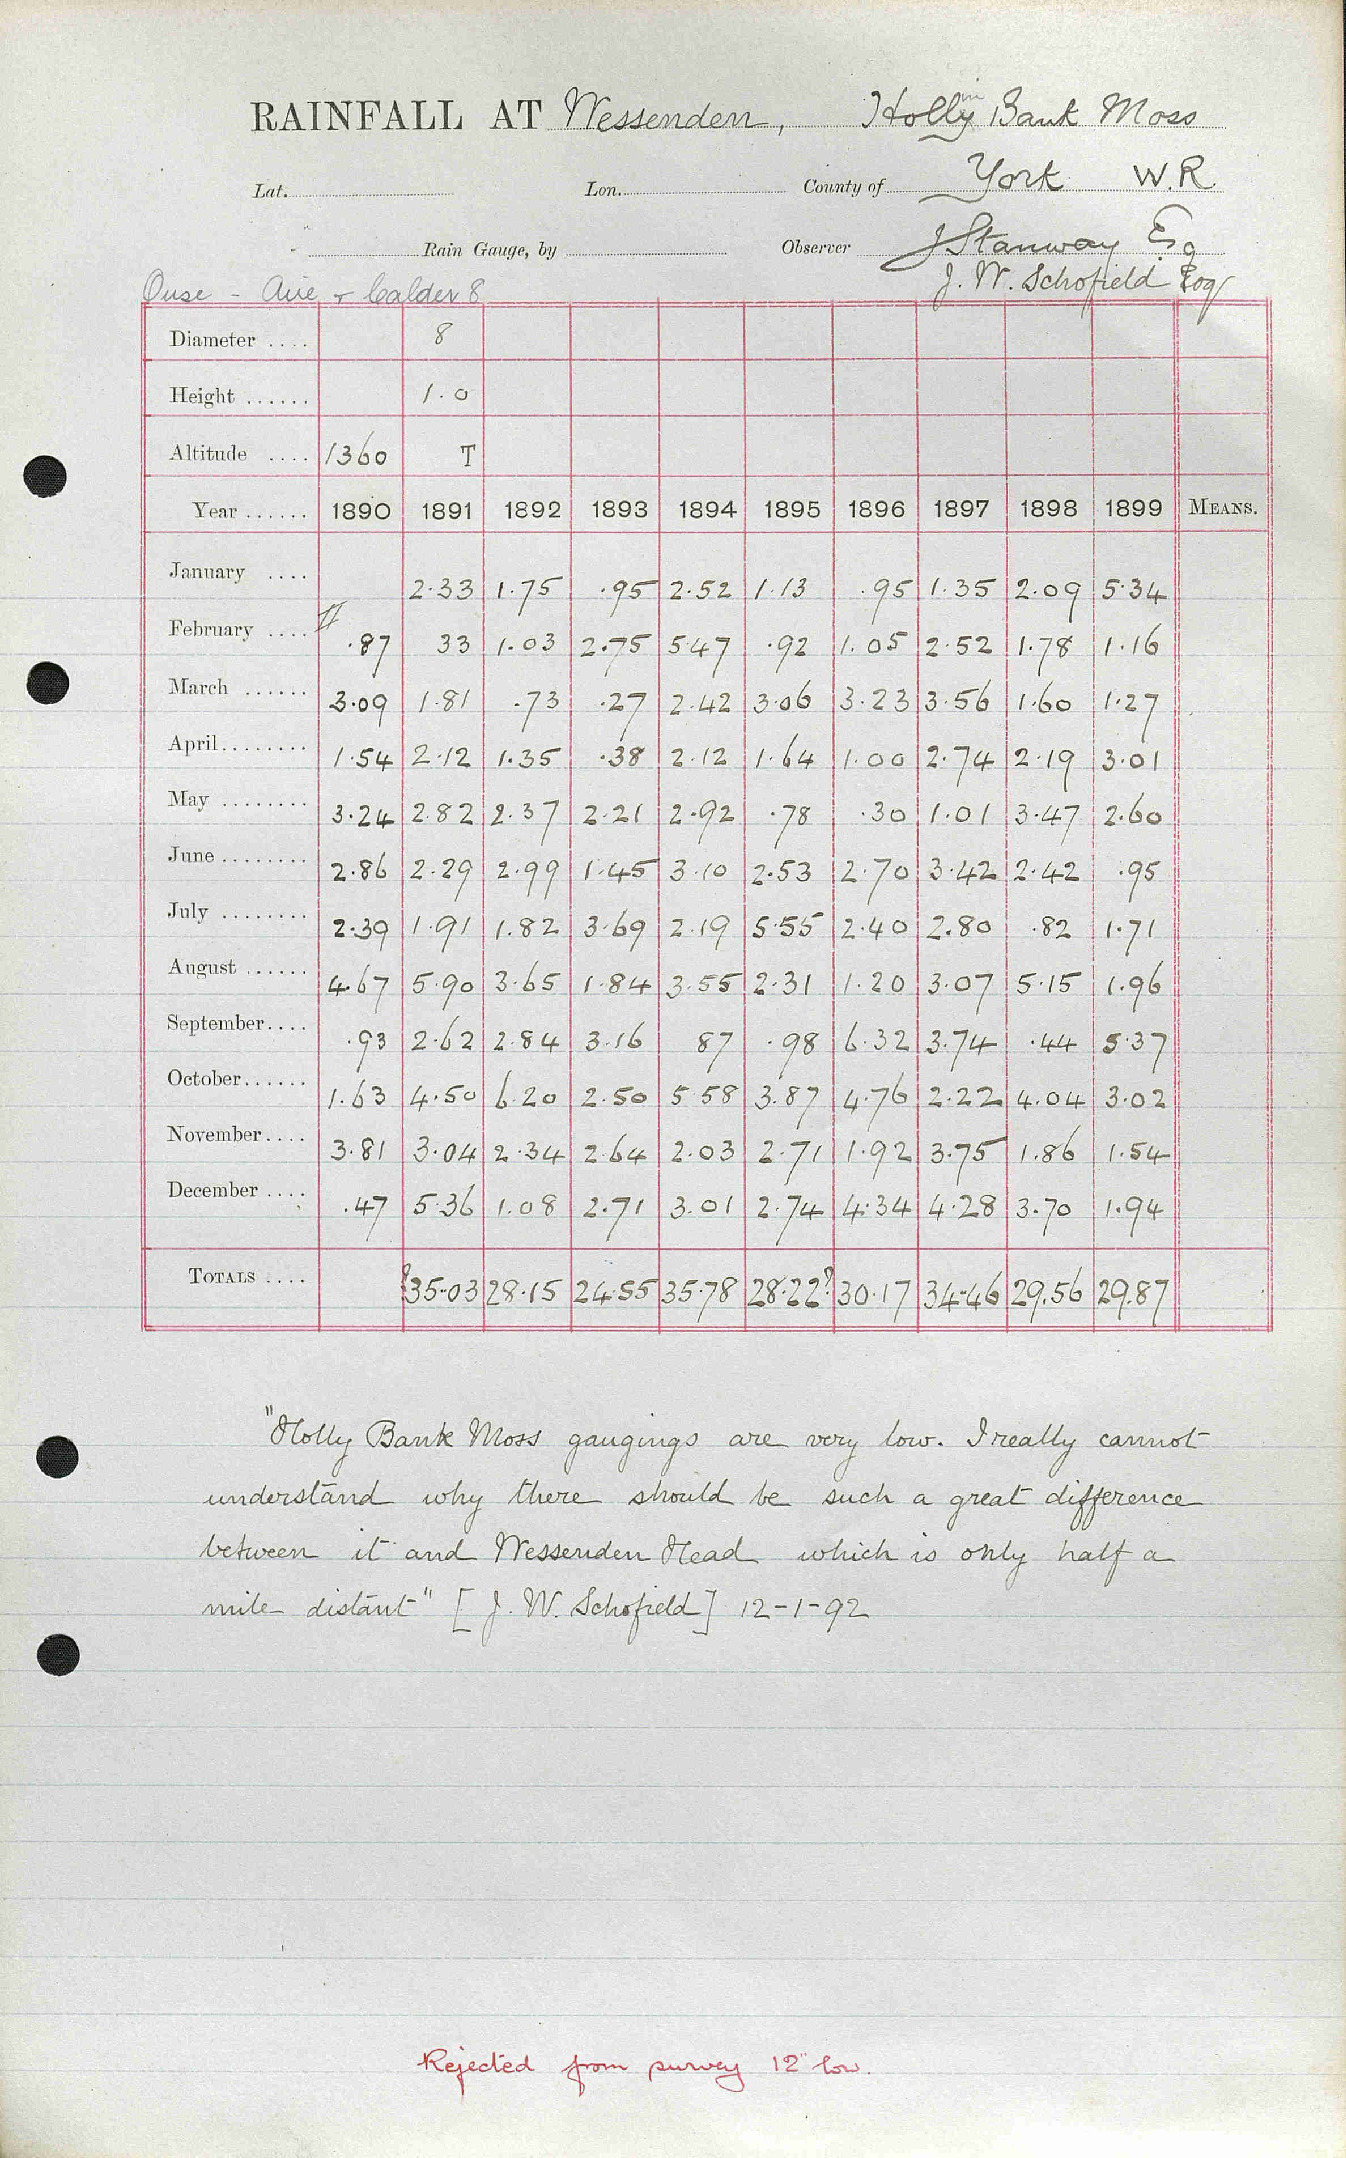 RAINFALL AT Wessenden, Holly in Bank Moss
Lat. Lon. County of York W.R.
Rain Gauge, by Observer J Stanway Esq
J. W. Schofield Esq
Ouse - Aire & Calder 8
Diameter .... 8
Height ...... 1.0
Altitude .... 1360 T
Year ...... 1890 1891 1892 1893 1894 1895 1896 1897 1898 1899 MEANS.
January .... 2.33 1.75 .95 2.52 1.13 .95 1.35 2.09 5.34
February .... .87 33 1.03 2.75 5.47 .92 1.05 2.52 1.78 1.16
March ...... 3.09 1.81 .73 .27 2.42 3.06 3.23 3.56 1.60 1.27
April........ 1.54 2.12 1.35 .38 2.12 1.64 1.00 2.74 2.19 3.01
May ........ 3.24 2.82 2.37 2.21 2.92 .78 .30 1.01 3.47 2.60
June ........ 2.86 2.29 2.99 1.45 3.10 2.53 2.70 3.42 2.42 .95
July ........ 2.39 1.91 1.82 3.69 2.19 5.55 2.40 2.80 .82 1.71
August ...... 4.67 5.90 3.65 1.84 3.55 2.31 1.20 3.07 5.15 1.96
September.... .93 2.62 2.84 3.16 87 .98 6.32 3.74 .44 5.37
October...... 1.63 4.50 6.20 2.50 5.58 3.87 4.76 2.22 4.04 3.02
November.... 3.81 3.04 2.34 2.64 2.03 2.71 1.92 3.75 1.86 1.54
December .... .47 5.36 1.08 2.71 3.01 2.74 4.34 4.28 3.70 1.94
TOTALS .... ?35.03 28.15 24.55 35.78 28.22? 30.17 34.46 29.56 29.87
"Holly Bank Moss gaugings are very low. I really cannot
understand why there should be such a great difference
between it and Wessenden Head which is only half a
mile distant" [J. W. Schofield] 12-1-92
Rejected from survey 12" low.